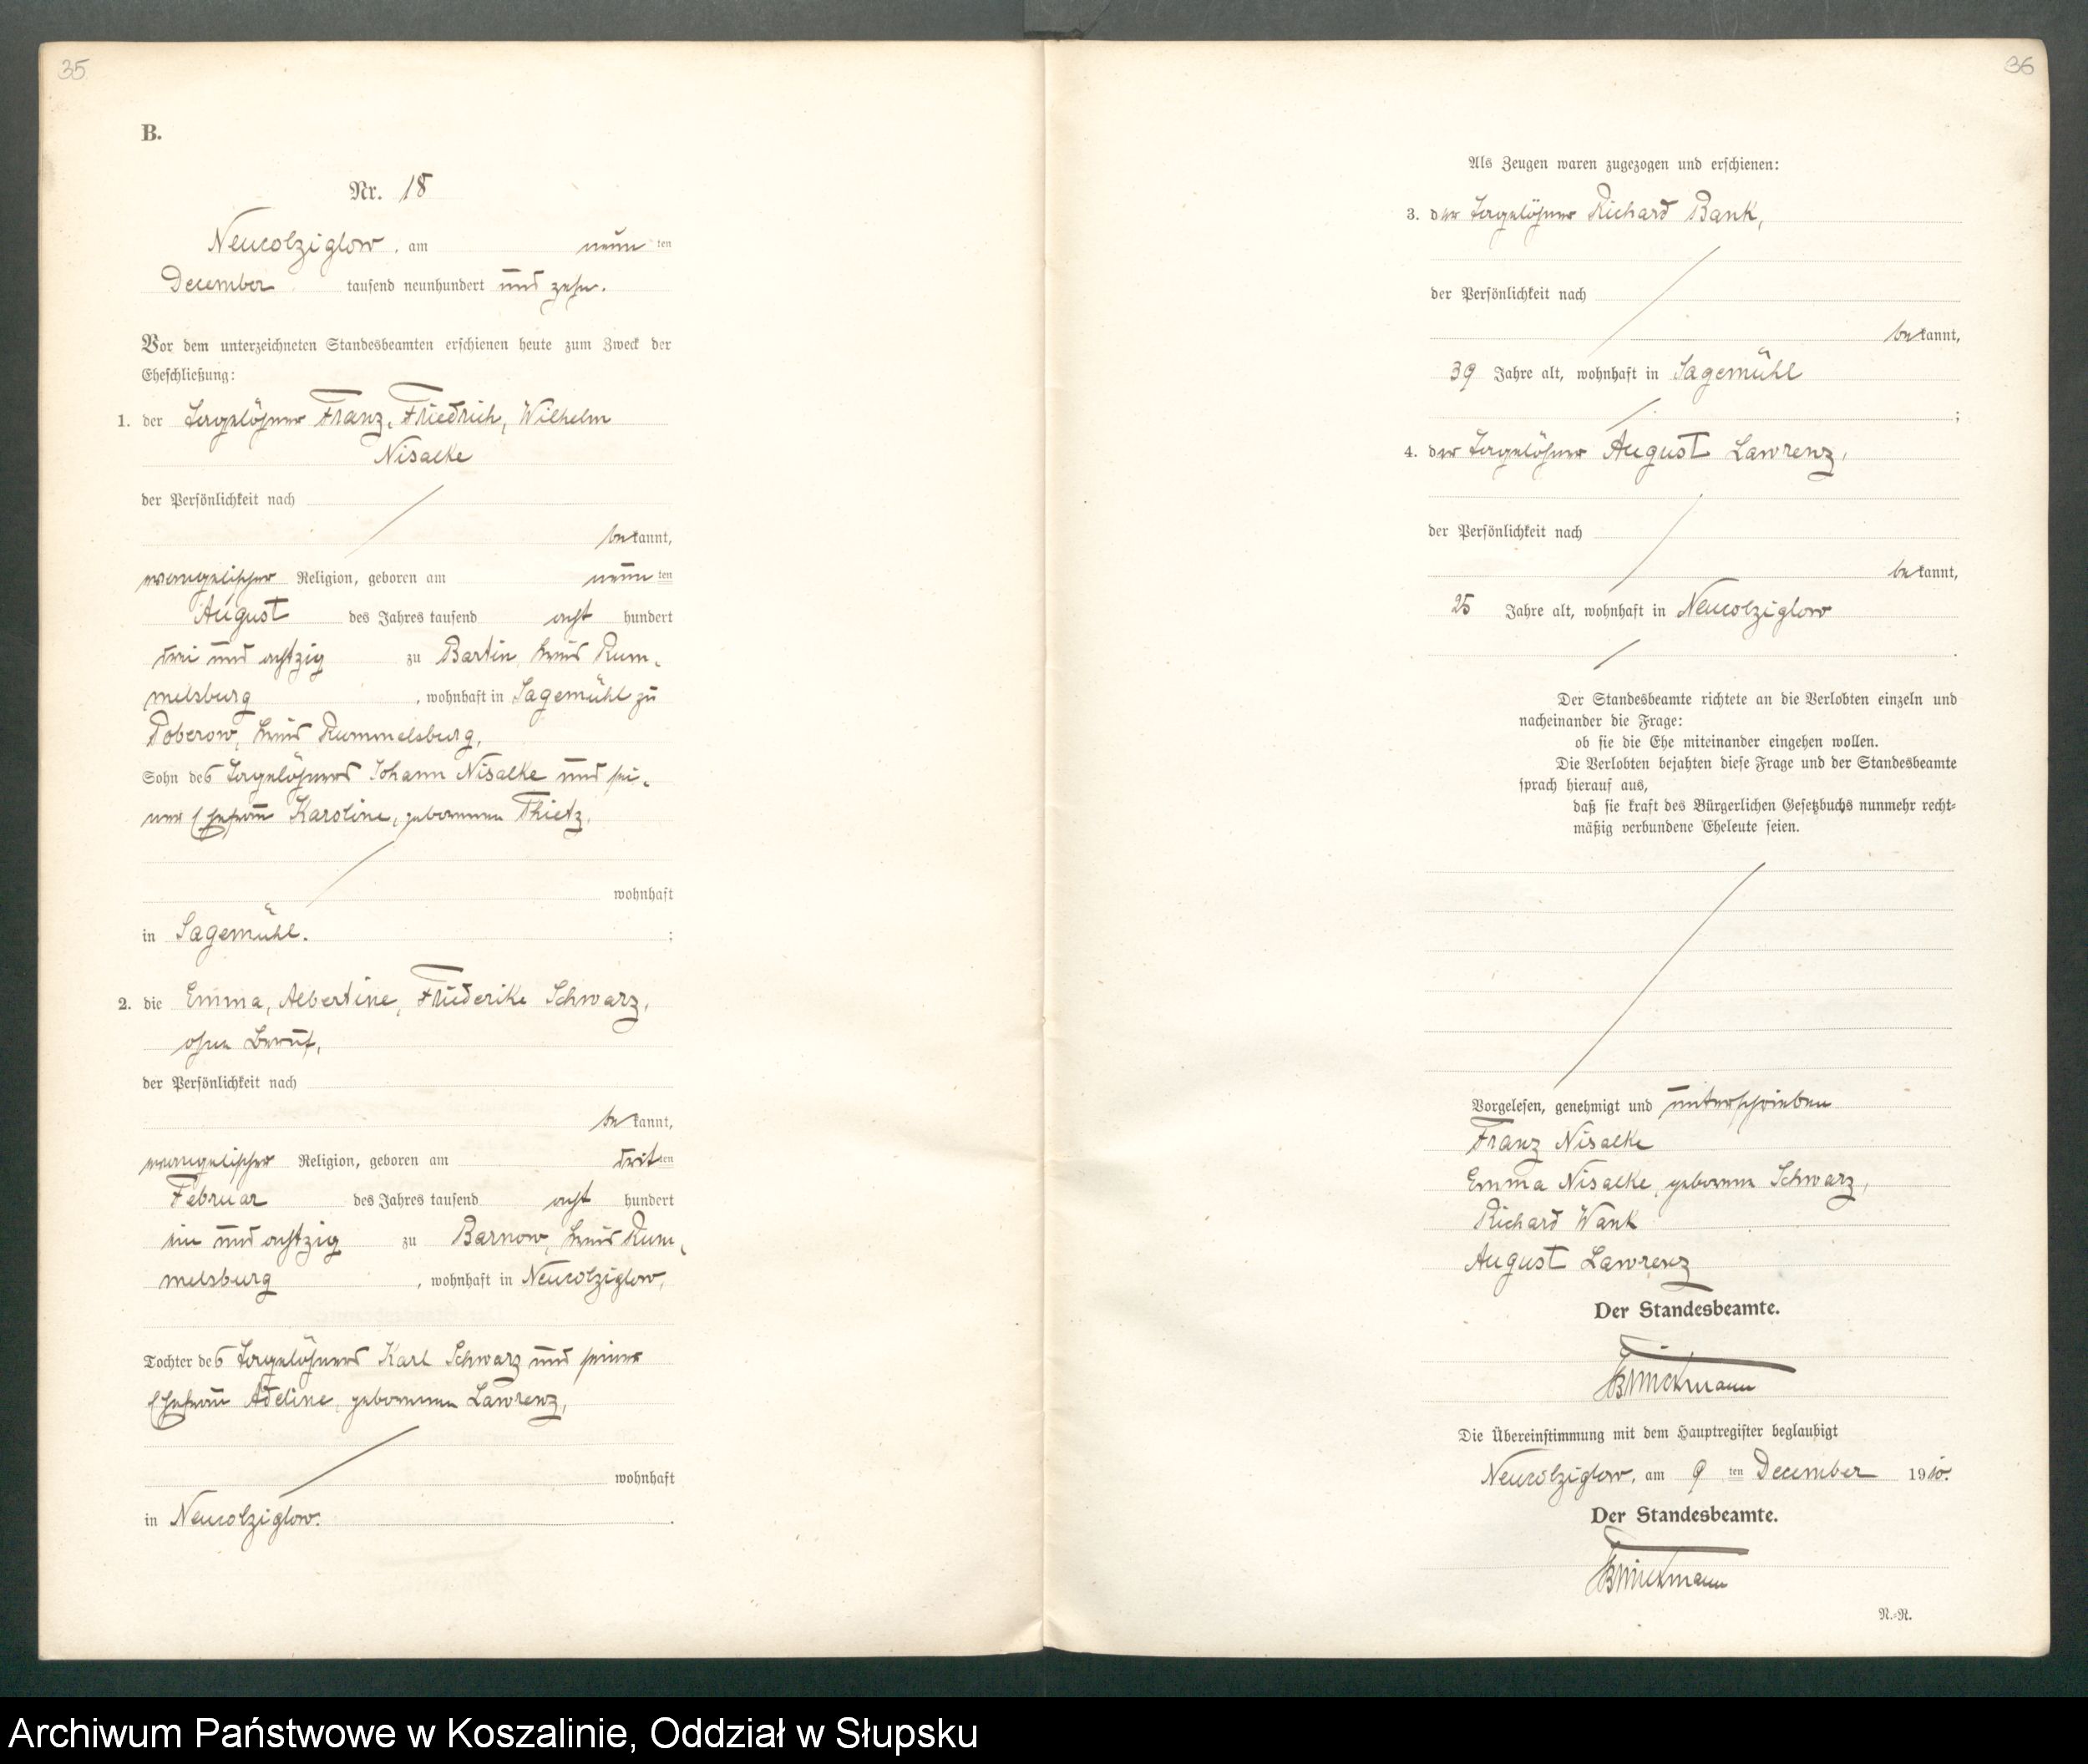 35
B.
Nr. 18
Neucolziglow, am neun ten
December tausend neunhundert und zehn.
Vor dem unterzeichneten Standesbeamten erschienen heute zum Zweck der
Eheschließung:
1. der Tagelöhner Franz, Friedrich, Wilhelm
Nisalke
der Persönlichkeit nach
bekannt,
evangelischer Religion, geboren am neun ten
August des Jahres tausend acht hundert
drei und achtzig zu Bartin, Kreis Rum-
melsburg, wohnhaft in Sagemühl zu
Poberow, Kreis Rummelsburg,
Sohn des Tagelöhners Johann Nisalke und sei-
ner Ehefrau Karoline, geborenen Thietz,
wohnhaft
in Sagemühl. ;
2. die Emma, Albertine, Friederike Schwarz,
ohne Beruf,
der Persönlichkeit nach
bekannt,
evangelischer Religion, geboren am dritten
Februar des Jahres tausend acht hundert
ein und achtzig zu Barnow, Kreis Rum-
melsburg, wohnhaft in Neucolziglow,
Tochter des Tagelöhners Karl Schwarz und seiner
Ehefrau Adeline, geborenen Lawrenz,
wohnhaft
in Neucolziglow.
36
Als Zeugen waren zugezogen und erschienen:
3. der Tagelöhner Richard Bank,
der Persönlichkeit nach
bekannt,
39 Jahre alt, wohnhaft in Sagemühl
;
4. der Tagelöhner August Lawrenz,
der Persönlichkeit nach
bekannt,
25 Jahre alt, wohnhaft in Neucolziglow
.
Der Standesbeamte richtete an die Verlobten einzeln und
nacheinander die Frage:
ob sie die Ehe miteinander eingehen wollen.
Die Verlobten bejahten diese Frage und der Standesbeamte
sprach hierauf aus,
daß sie kraft des Bürgerlichen Gesetzbuchs nunmehr recht-
mäßig verbundene Eheleute seien.
Vorgelesen, genehmigt und unterschrieben
Franz Nisalke
Emma Nisalke, geborene Schwarz,
Richard Wank
August Lawrenz
Der Standesbeamte.
Brinckmann
Die Übereinstimmung mit dem Hauptregister beglaubigt
Neucolziglow, am 9 ten December 1910.
Der Standesbeamte.
Brinckmann
N.=R.
Archiwum Państwowe w Koszalinie, Oddział w Słupsku